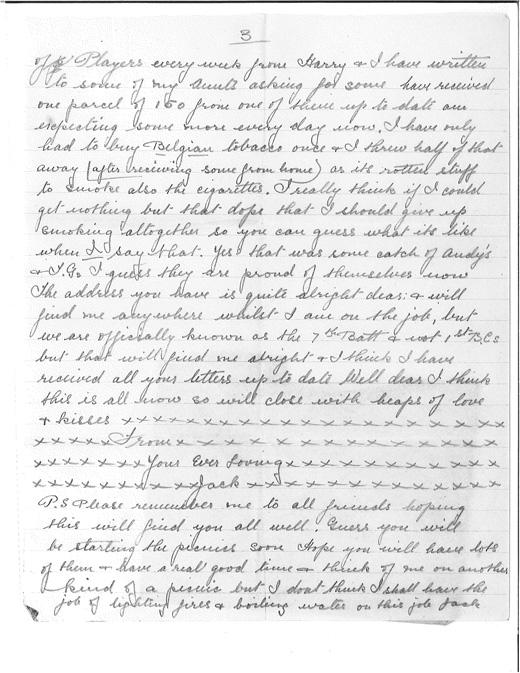 3
of Players every week from Harry & I have written
to some of my Aunts asking for some have received
one parcel of 150 from one of them up to date am
expecting some more every day now. I have only
had to buy Belgian tobacco once & I threw half of that
away (after receiving some from home) as its rotten stuff
to smoke also the cigarettes. I really think if I could
get nothing but that dope that I should give up
smoking altogether so you can guess what its like
when I say that. Yes that was some catch of Andy's
& J.G. I guess they are proud of themselves now
The address you have is quite alright dear; & will
find me anywhere whilst I am on the job, but
we are officially known as the 7th Batt & not 1st B.Cs
but that will find me alright & I think I have
received all your letters up to date Well dear I think
this is all now so will close with heaps of love
& kisses x x x x x x x x x x x x x x x x x x x
x x x x x From x x x x x x x x x x x x x x x
x x x x x x x Your Ever Loving x x x x x x x x x x
x x x x x x x x x x Jack x x x x x x x x x x x x
P.S Please remember me to all friends hoping
this will find you all well. Guess you will
be starting the picnics soon Hope you will have lots
of them & have a real good time & think of me on another
kind of a picnic but I dont think I shall have the
job of lighting fires & boiling water on this job Jack